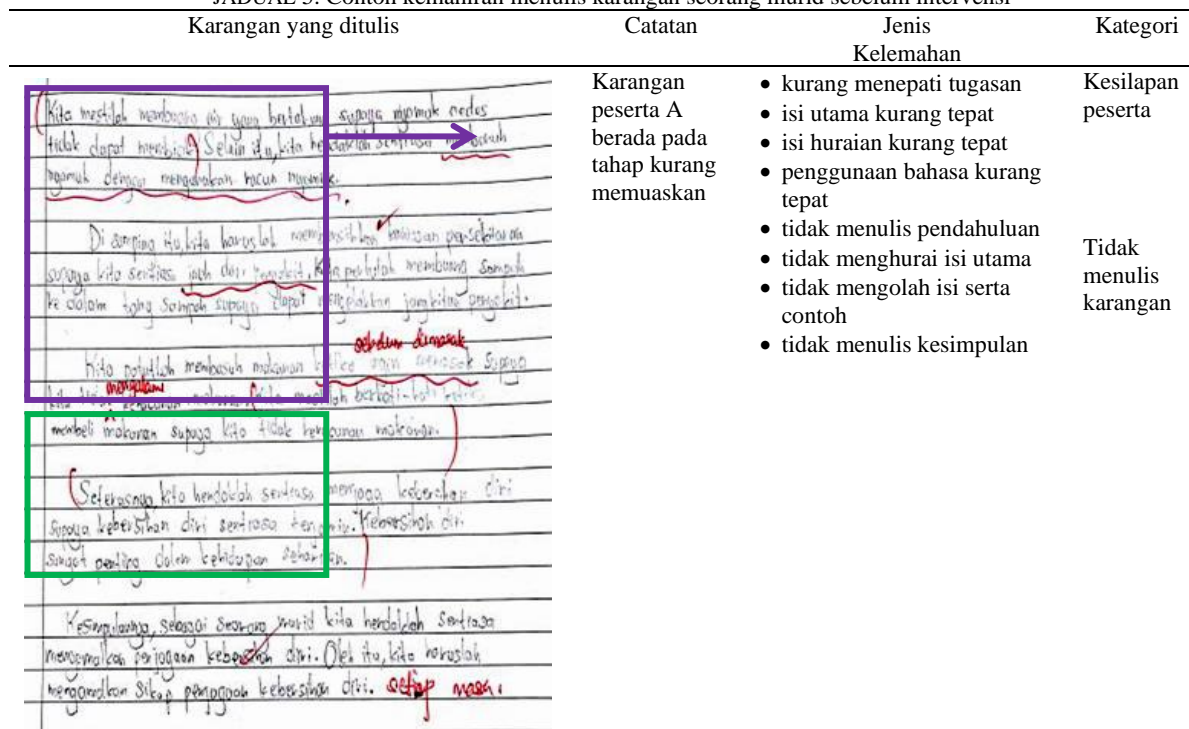 JADUAL 3. Contoh kemahiran menulis karangan seorang murid sebelum intervensi
Karangan yang ditulis Catatan Jenis Kelemahan Kategori
Kita mestilah membuang air yang bertakung supaya nyamuk aedes
tidak dapat membiak. Selain itu, kita hendaklah sentiasa membunuh
nyamuk dengan menggunakan racun
Di samping itu, kita haruslah membersihkan kawasan persekitaran
supaya kita sentiasa jauh dari penyakit. Kita perlulah membuang sampah
ke dalam tong sampah supaya dapat mengelakkan jangkitan penyakit.
sebelum dimasak
Kita patutlah membasuh makanan supaya
mengalami
kita tidak keracunan makanan. Kita mestilah berhati-hati ketika
membeli makanan supaya kita tidak keracunan makanan.
Seterusnya, kita hendaklah sentiasa menjaga kebersihan diri
supaya kebersihan diri sentiasa terjamin. Kebersihan diri
sangat penting dalam kehidupan seharian.
Kesimpulannya, sebagai seorang murid kita hendaklah sentiasa
mengamalkan penjagaan kebersihan diri. Oleh itu, kita haruslah
mengamalkan sikap penjagaan kebersihan diri. setiap masa.
Karangan
peserta A
berada pada
tahap kurang
memuaskan
• kurang menepati tugasan
• isi utama kurang tepat
• isi huraian kurang tepat
• penggunaan bahasa kurang
tepat
• tidak menulis pendahuluan
• tidak menghurai isi utama
• tidak mengolah isi serta
contoh
• tidak menulis kesimpulan
Kesilapan
peserta
Tidak
menulis
karangan